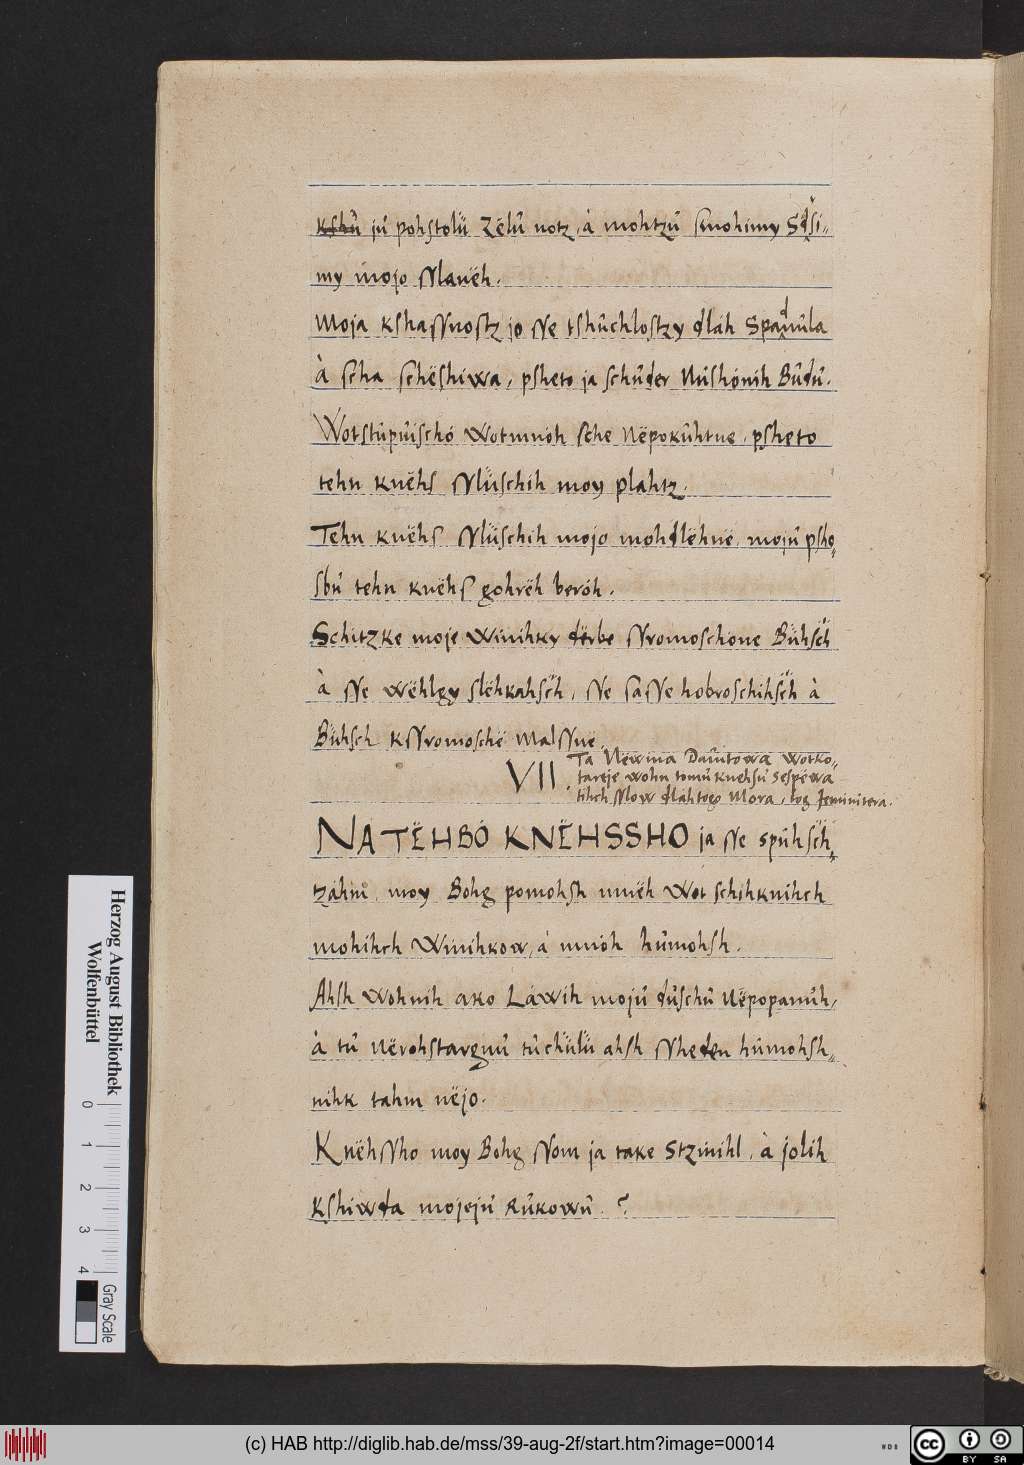 kshů jů pohstolü Zëlů notz, à mohtzů smohimy Sdsi=
my mojo Slaneh.
Moja kshaSSnostz jo Se tshůchlostzy dlah Spadnůla
À scha schëshiwa, psheto ja schůder Nůshónih Bůdů.
Wotstůpůischó Wotmnóh sche Nëpokůhtne, psheto
tehn knëhs Slüschih moy plahtz.
Tehn knëhs Slüschih mojo mohdlëhnë, mojů psho=
sbů tehn knëhs gohrëh beróh.
Schitzke moje Winihky dërbe Sromoschone Bühsch
à Se wëhlgy slëhkahsch, Se saSe hobroschihsch à
Bühsch kSromoschë MalSnë.
VII. Ta Nëwina Dawitowa wotko=
tareje wohn tomů knehsů sespëwa
tihch Slow dlahtogo Mora, tog Jeminitera.
NATËHBÓ KNËHSSHO ja Se spůhsch=
tzáhm, moy Bohg pomohsh mnëh Wot schihknihch
mohihch Winihkow, à mnóh hůmohsh.
Ahsh Wohnih ako Láwih mojů důschů Nëpopanůh,
à tů Nërohstargnů tůchülü ahsh Sheden hůmohsh=
nihk tahm nëjo.
KnëhSho moy Bohg Som ja take Stzinihl, à jolih
kshiwda mojejů Růkowů. ?
Herzog August Bibliothek
Wolfenbüttel
0 1 2 3 4
Gray Scale
(c) HAB http://diglib.hab.de/mss/39-aug-2f/start.htm?image=00014
WDB
cc BY SA